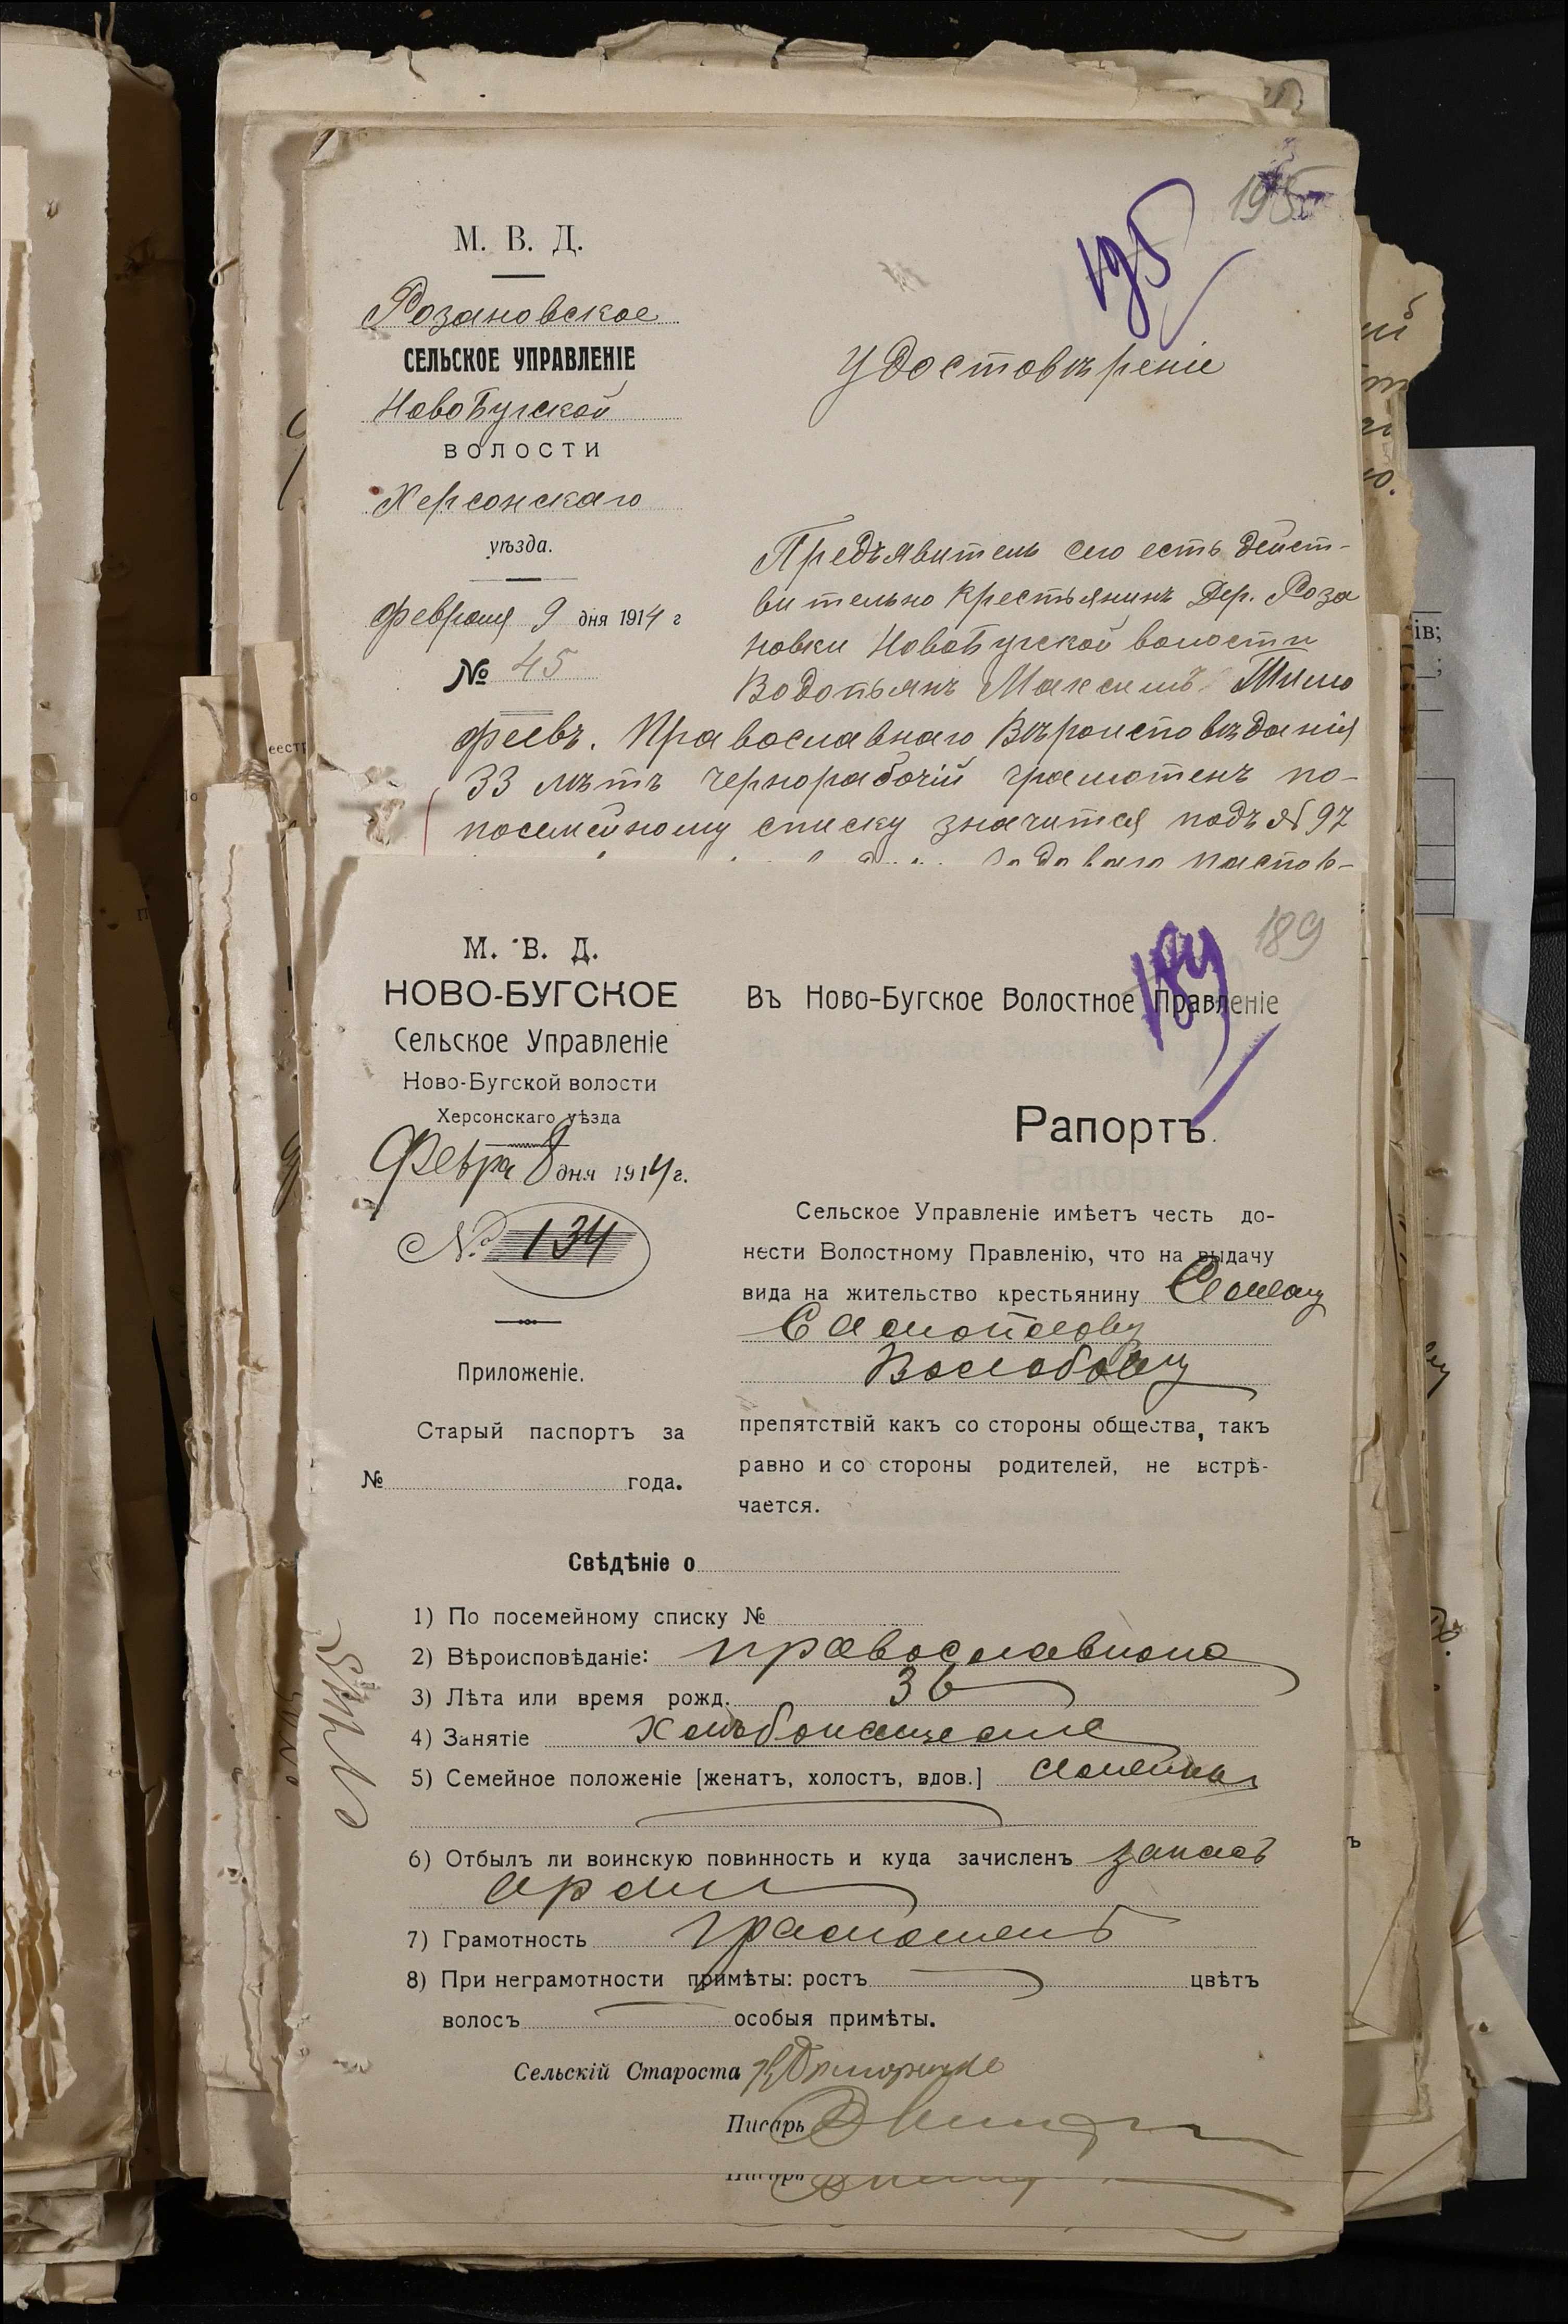 195
195
М. В. Д.
Розановское
СЕЛЬСКОЕ УПРАВЛЕНІЕ
НовоБугской
ВОЛОСТИ
Херсонскаго
уѣзда.
Февраля 9 дня 1914 г
№ 45
Удостовѣреніе
Предъявитель сего есть дейст-
вительно крестьянинъ Дер. Роза
новки НовоБугской волости
Водопьянъ Максимъ Тимо
феевъ. Православнаго Вѣроисповѣданія
33 лѣтъ чернорабочій грамотенъ по-
посемейному списку значится подъ № 97
189
189
М. В. Д.
НОВО-БУГСКОЕ
Сельское Управленіе
Ново-Бугской волости
Херсонскаго уѣзда
Февра 8 дня 1914 г.
№ 134
Приложеніе.
Старый паспортъ за
№ года.
Въ Ново-Бугское Волостное Правленіе
Рапортъ.
Сельское Управленіе имѣетъ честь до-
нести Волостному Правленію, что на выдачу
вида на жительство крестьянину
препятствій какъ со стороны общества, такъ
равно и со стороны родителей, не встрѣ-
чается.
Свѣдѣніе о
1) По посемейному списку №
2) Вѣроисповѣданіе: православнаго
3) Лѣта или время рожд. 36
4) Занятіе хлѣбопашество
5) Семейное положеніе [женатъ, холостъ, вдов.]
6) Отбылъ ли воинскую повинность и куда зачисленъ запасъ
арміи
7) Грамотность грамотенъ
8) При неграмотности примѣты: ростъ цвѣтъ
волосъ особыя примѣты.
Сельскій Староста
Писарь